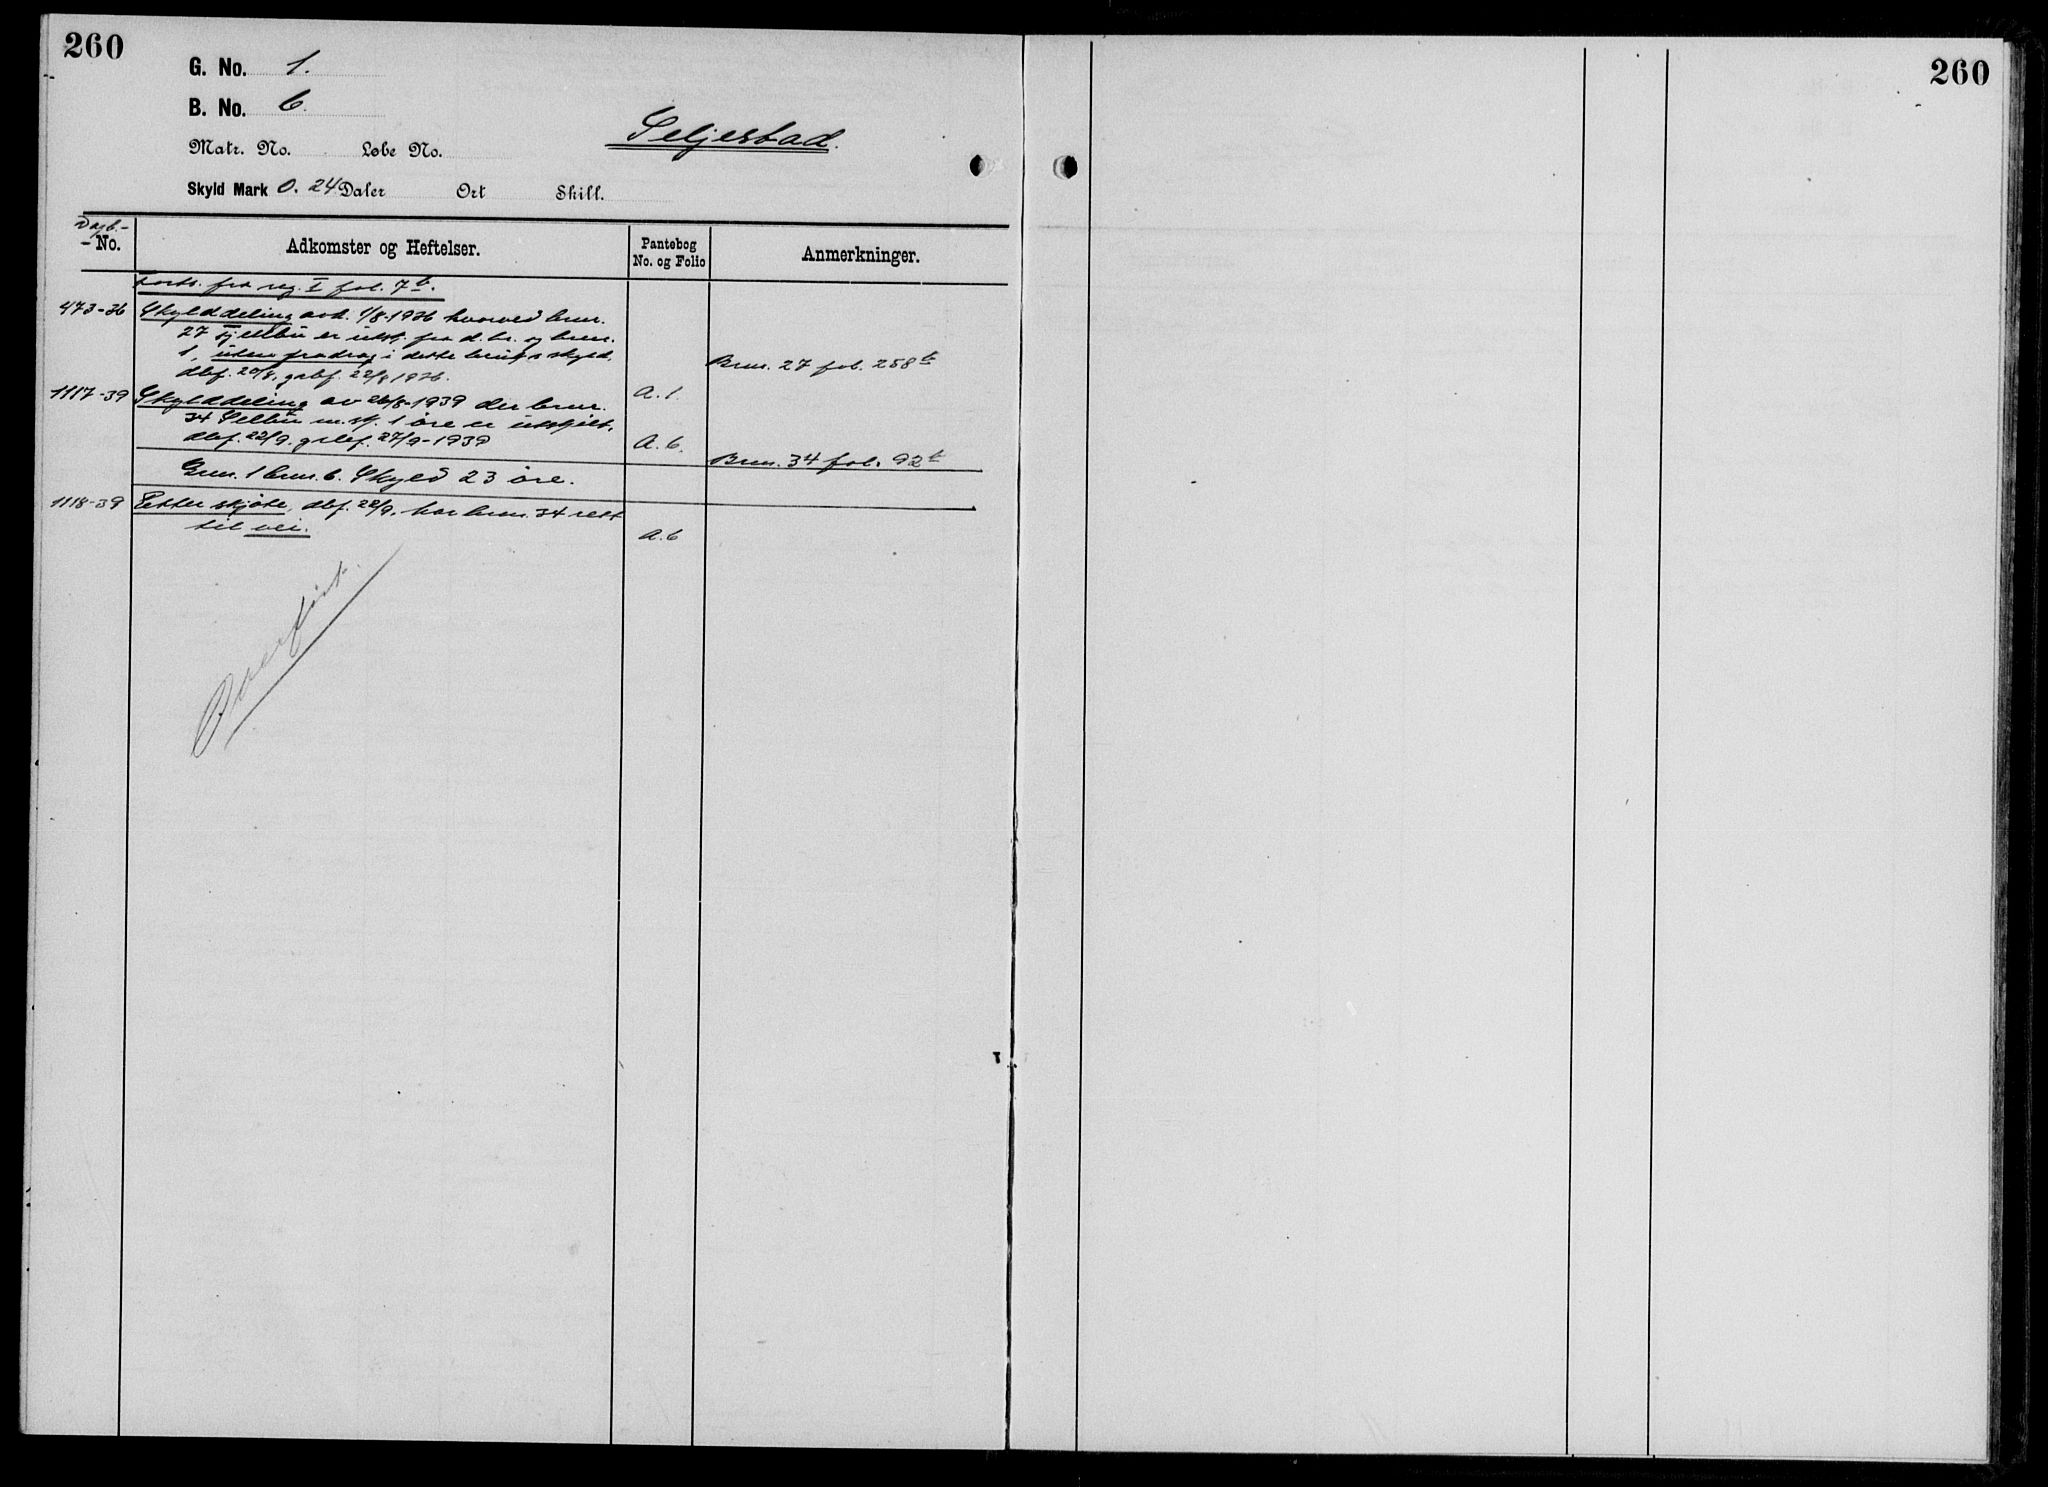 260
260
G. No. 1.
B. No. 6.
Seljestad.
Matr. No. Løbe No.
Skyld Mark 0.24 Daler Ort Skill.
Dagb.-
No. Adkomster og Heftelser. Pantebog No. og Folio Anmerkninger.
Forts. fra reg. I fol. 7b.
473-36 Skylddeling avh. 1/8-1936 hvorved bnr.
27 Fjellbu er utskj. fra d. br. og bnr.
1, uten fradrag i dette bruks skyld,
Bnr. 27 fol. 258b
dbf. 20/8, gabf. 22/8 1936. A. 1.
1117-39 Skylddeling av 26/8-1939 der bnr.
34 Selbu m. sk. 1 øre er utskjilt,
dbf. 22/9. gslef. 27/9-1939 A. 6. Bnr. 34 fol. 92b
Gnr. 1 bnr. 6. Skyld 23 øre.
1118-39 Etter skjøte, dbf. 22/9, har bnr. 34 rett
til vei. A. 6
Overført.